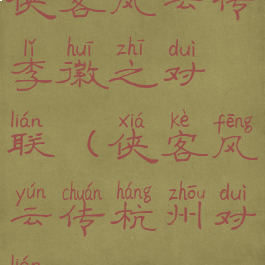 侠客风云传
lǐ huī zhī duì
李徽之对
lián xiá kè fēng
联（侠客风
yún chuán háng zhōu duì
云传杭州对
lián